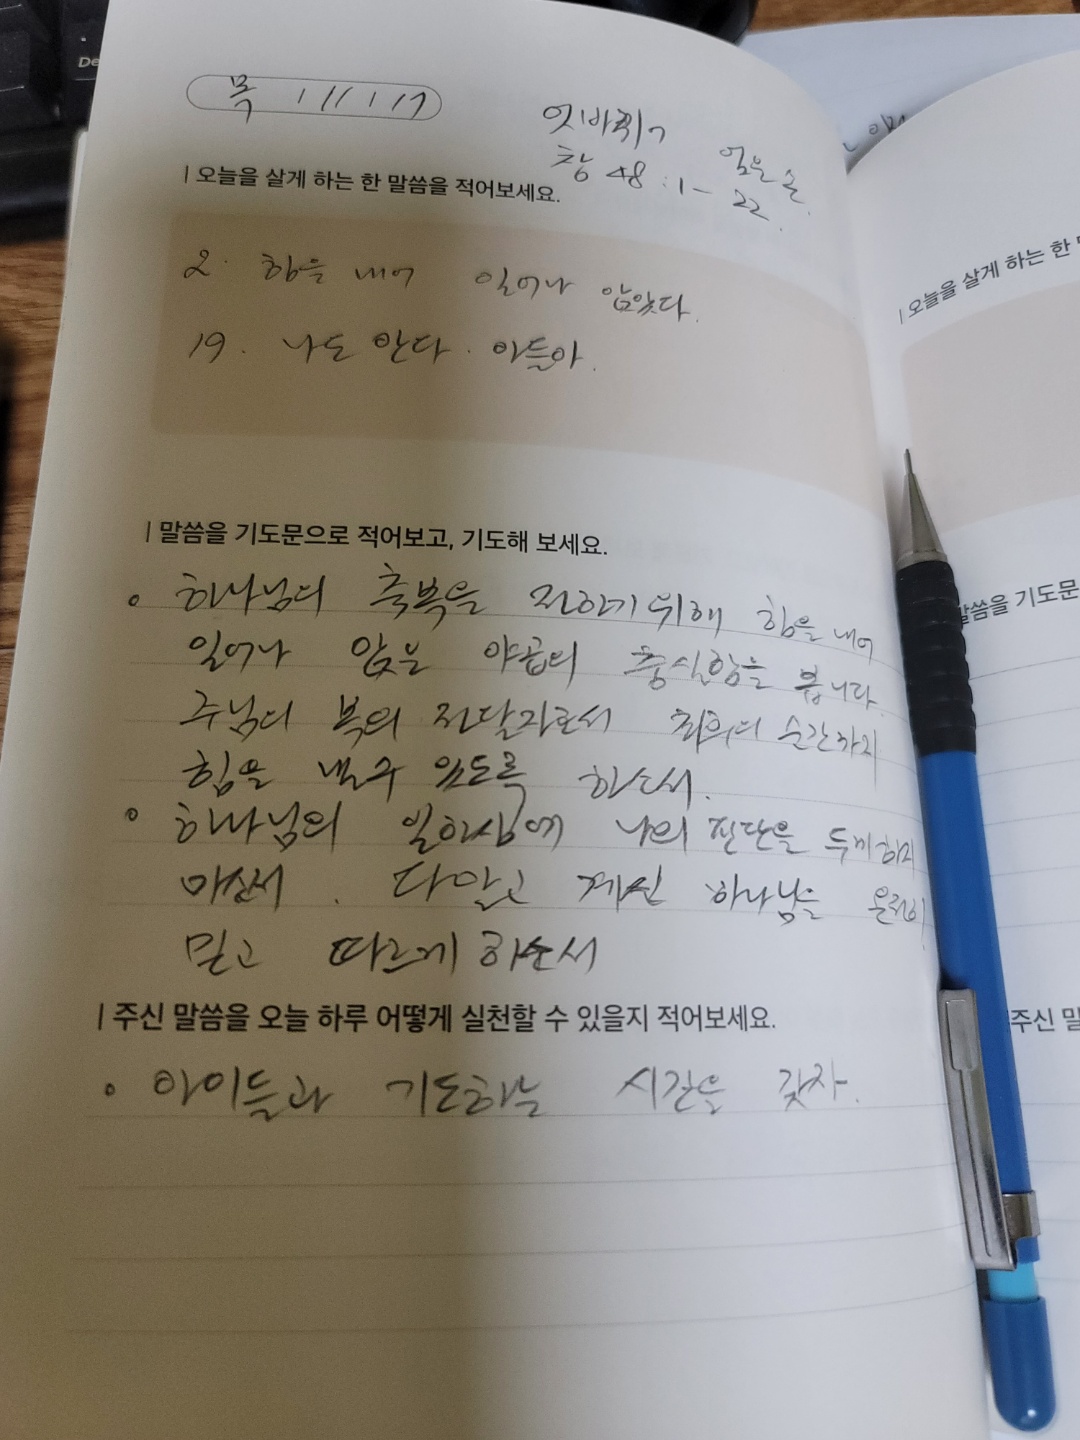 De
목 1 / 1 / 1 / 17
엇바뀌ㄱ 얹은 손.
창 48 : 1 - 22.
| 오늘을 살게 하는 한 말씀을 적어보세요.
2. 힘을 내어 일어나 앉았다.
19. 나도 안다. 아들아.
| 말씀을 기도문으로 적어보고, 기도해 보세요.
하나님의 축복을 전하기 위해 힘을 내어
일어나 앉은 야곱의 충실함을 봅니다.
주님의 복의 전달자로서 최후의 순간까지
힘을 낼 수 있도록 하소서.
하나님의 일하심에 나의 판단을 두게 하지
마소서. 다 알고 계신 하나님을 온전히
믿고 따르게 하소서
| 주신 말씀을 오늘 하루 어떻게 실천할 수 있을지 적어보세요.
아이들과 기도하는 시간을 갖자.
| 오늘을 살게 하는 한
말씀을 기도문
주신 말